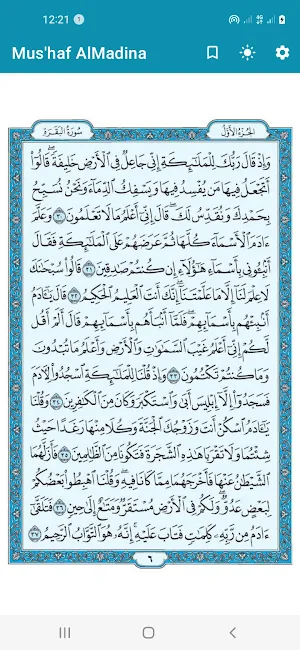 12:21 1
Mus'haf AlMadina
سُورَةُ البَقَرَةِ الجُزءُ الأَوَّلُ
وَإِذْ قَالَ رَبُّكَ لِلْمَلَٰٓئِكَةِ إِنِّي جَاعِلٌ فِي ٱلْأَرْضِ خَلِيفَةً ۖ قَالُوٓا۟
أَتَجْعَلُ فِيهَا مَن يُفْسِدُ فِيهَا وَيَسْفِكُ ٱلدِّمَآءَ وَنَحْنُ نُسَبِّحُ
بِحَمْدِكَ وَنُقَدِّسُ لَكَ ۖ قَالَ إِنِّيٓ أَعْلَمُ مَا لَا تَعْلَمُونَ ٣٠ وَعَلَّمَ
ءَادَمَ ٱلْأَسْمَآءَ كُلَّهَا ثُمَّ عَرَضَهُمْ عَلَى ٱلْمَلَٰٓئِكَةِ فَقَالَ
أَنۢبِـُٔونِي بِأَسْمَآءِ هَٰٓؤُلَآءِ إِن كُنتُمْ صَٰدِقِينَ ٣١ قَالُوا۟ سُبْحَٰنَكَ
لَا عِلْمَ لَنَآ إِلَّا مَا عَلَّمْتَنَآ ۖ إِنَّكَ أَنتَ ٱلْعَلِيمُ ٱلْحَكِيمُ ٣٢ قَالَ يَٰٓـَٔادَمُ
أَنۢبِئْهُم بِأَسْمَآئِهِمْ ۖ فَلَمَّآ أَنۢبَأَهُم بِأَسْمَآئِهِمْ قَالَ أَلَمْ أَقُل
لَّكُمْ إِنِّيٓ أَعْلَمُ غَيْبَ ٱلسَّمَٰوَٰتِ وَٱلْأَرْضِ وَأَعْلَمُ مَا تُبْدُونَ
وَمَا كُنتُمْ تَكْتُمُونَ ٣٣ وَإِذْ قُلْنَا لِلْمَلَٰٓئِكَةِ ٱسْجُدُوا۟ لِءَادَمَ
فَسَجَدُوٓا۟ إِلَّآ إِبْلِيسَ أَبَىٰ وَٱسْتَكْبَرَ وَكَانَ مِنَ ٱلْكَٰفِرِينَ ٣٤ وَقُلْنَا
يَٰٓـَٔادَمُ ٱسْكُنْ أَنتَ وَزَوْجُكَ ٱلْجَنَّةَ وَكُلَا مِنْهَا رَغَدًا حَيْثُ
شِئْتُمَا وَلَا تَقْرَبَا هَٰذِهِ ٱلشَّجَرَةَ فَتَكُونَا مِنَ ٱلظَّٰلِمِينَ ٣٥ فَأَزَلَّهُمَا
ٱلشَّيْطَٰنُ عَنْهَا فَأَخْرَجَهُمَا مِمَّا كَانَا فِيهِ ۖ وَقُلْنَا ٱهْبِطُوا۟ بَعْضُكُمْ
لِبَعْضٍ عَدُوٌّ ۖ وَلَكُمْ فِي ٱلْأَرْضِ مُسْتَقَرٌّ وَمَتَٰعٌ إِلَىٰ حِينٍ ٣٦ فَتَلَقَّىٰٓ
ءَادَمُ مِن رَّبِّهِۦ كَلِمَٰتٍ فَتَابَ عَلَيْهِ ۚ إِنَّهُۥ هُوَ ٱلتَّوَّابُ ٱلرَّحِيمُ ٣٧
٦